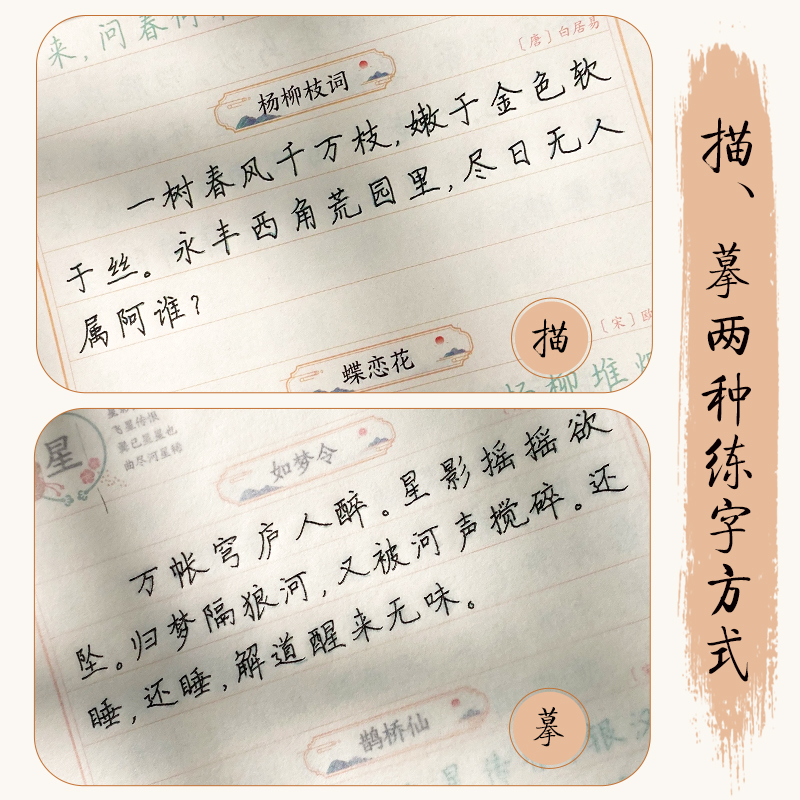 来,问春何
〔唐〕白居易
杨柳枝词
一树春风千万枝,嫩于金色软
于丝。永丰西角荒园里,尽日无人
属阿谁?
描
〔宋〕欧
蝶恋花
杨柳堆烟
星
飞星传恨
曲尽河星的
如梦令
万帐穹庐人醉。星影摇摇欲
坠。归梦隔狼河,又被河声搅碎。还
睡,还睡,解道醒来无味。
摹
鹊桥仙
描、摹两种练字方式